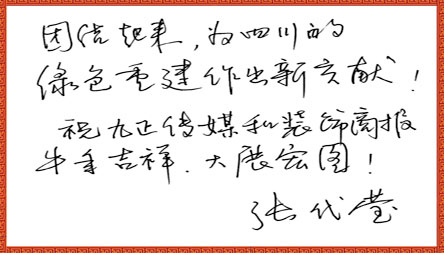 团结起来,为四川的
绿色重建作出新贡献!
祝九正传媒和装饰商报
牛年吉祥.大展宏图!
张代莹